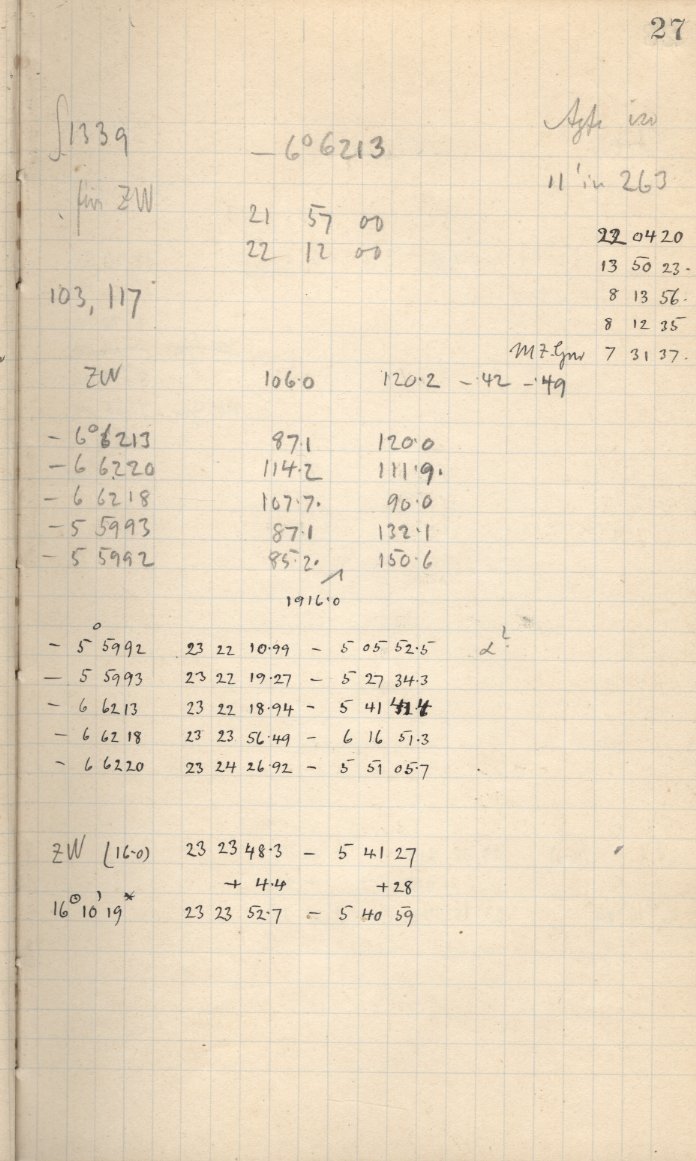 27
∫1339 - 6° 6213
für ZW
21 57 00
22 12 00
11' in 263
22 04 20
13 50 23.
8 13 56.
8 12 35
7 31 37.
103, 117
ZW 106.0 120.2 - .42 - .49
- 6° 6213 87.1 120.0
- 6 6220 114.2 111.9.
- 6 6218 107.7. 90.0
- 5 5993 87.1 132.1
- 5 5992 85.2. 150.6
1916.0
- 5° 5992 23 22 10.99 - 5 05 52.5
- 5 5993 23 22 19.27 - 5 27 34.3
- 6 6213 23 22 18.94 - 5 41
- 6 6218 23 23 56.49 - 6 16 51.3
- 6 6220 23 24 26.92 - 5 51 05.7
ZW (16.0) 23 23 48.3 - 5 41 27
+ 4.4 + 28
16° 10' 19* 23 23 52.7 - 5 40 59